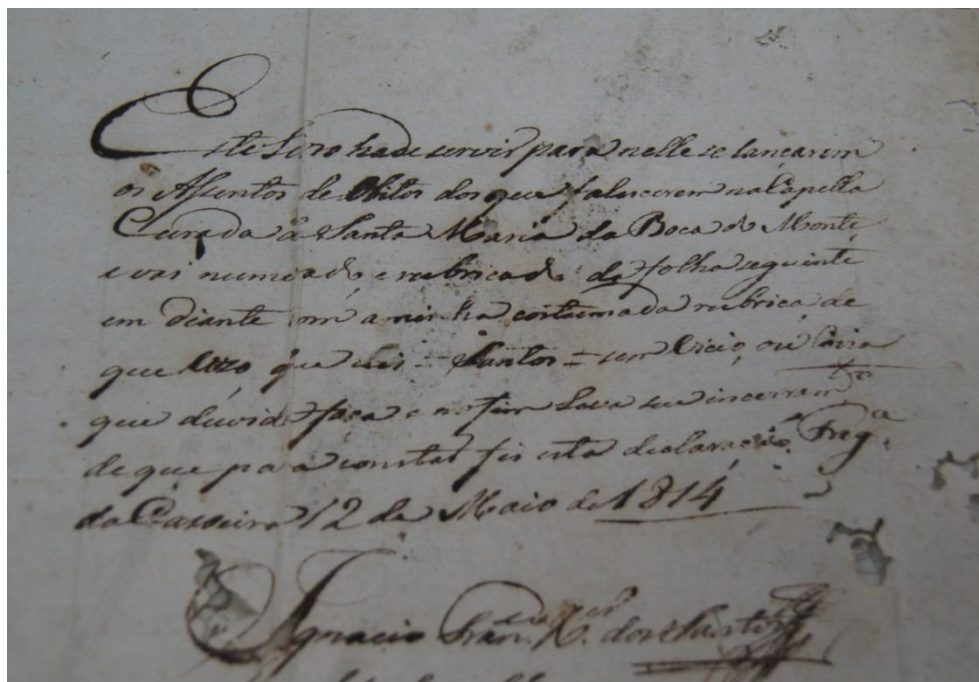 Este Livro hade servir para nelle se lançarem
os Assentos de Obitos dos que falescerem na Capella
Curada de Santa Maria da Boca do Monte
e vai numerado e rubricado da folha seguinte
em diante com a minha costumada rubrica de
que uzo, que diz = Santos = sem vicio, ou
que duvida faça e no fim Leva seu incerram.to
de que para constar fis esta declaração. Freg.a
da Caxoeira 12 de Maio de 1814
Ignacio Fran.co X.er dos Santos